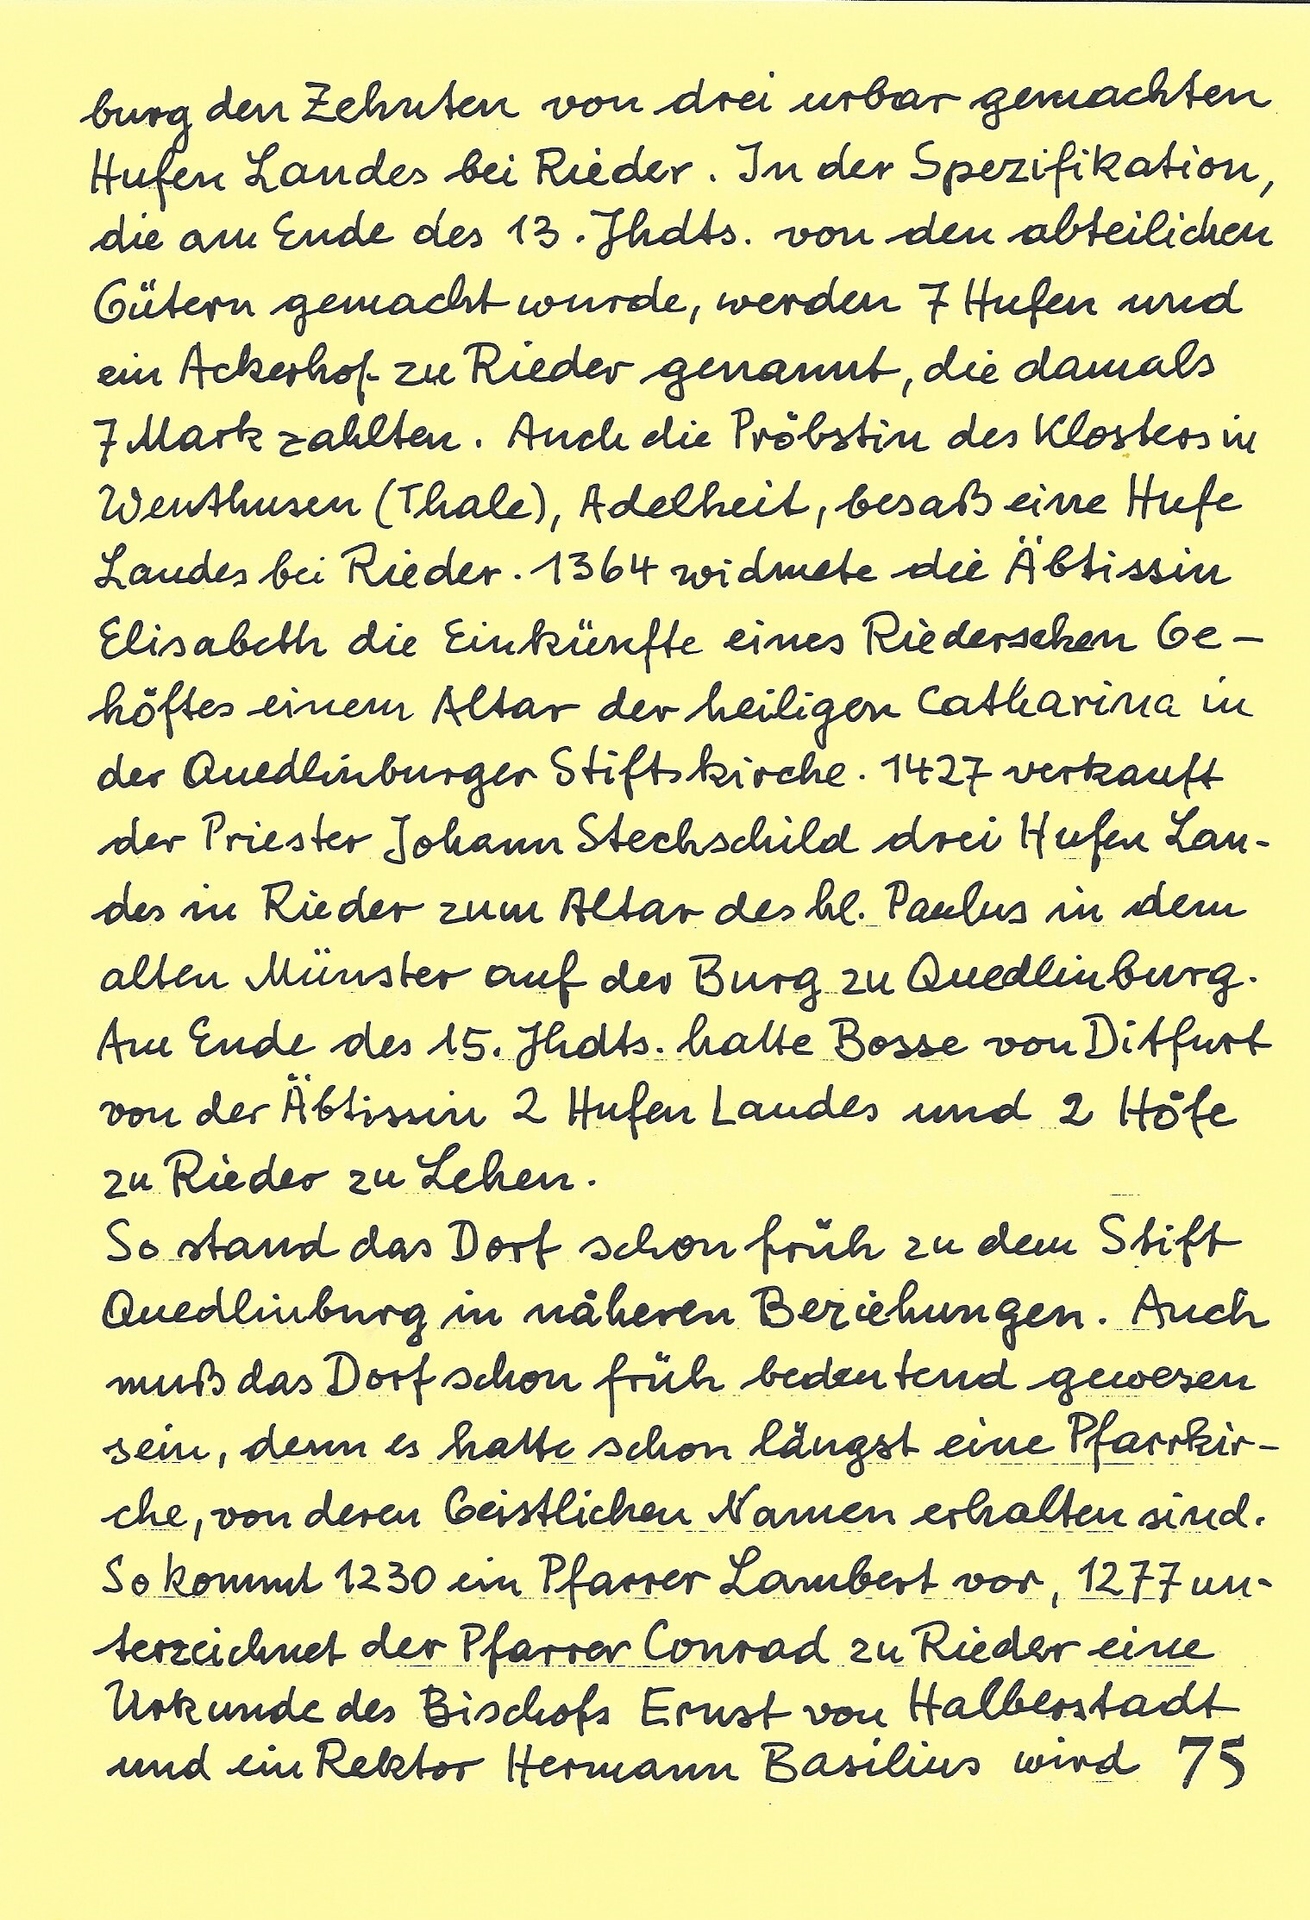 burg den Zehnten von drei urbar gemachten
Hufen Landes bei Rieder. In der Spezifikation,
die am Ende des 13. Jhdts. von den abteilichen
Gütern gemacht wurde, werden 7 Hufen und
ein Ackerhof zu Rieder genannt, die damals
7 Mark zahlten. Auch die Pröbstin des Klosters in
Wenthusen (Thale), Adelheit, besaß eine Hufe
Landes bei Rieder. 1364 widmete die Äbtissin
Elisabeth die Einkünfte eines Riederschen Ge-
höftes einem Altar der heiligen Catharina in
der Quedlinburger Stiftskirche. 1427 verkauft
der Priester Johann Stechschild drei Hufen Lan-
des in Rieder zum Altar des hl. Paulus in dem
alten Münster auf der Burg zu Quedlinburg.
Am Ende des 15. Jhdts. hatte Bosse von Ditfurt
von der Äbtissin 2 Hufen Landes und 2 Höfe
zu Rieder zu Lehen.
So stand das Dorf schon früh zu dem Stift
Quedlinburg in näheren Beziehungen. Auch
muß das Dorf schon früh bedeutend gewesen
sein, denn es hatte schon längst eine Pfarrkir-
che, von deren Geistlichen Namen erhalten sind.
So kommt 1230 ein Pfarrer Lambert vor, 1277 un-
terzeichnet der Pfarrer Conrad zu Rieder eine
Urkunde des Bischofs Ernst von Halberstadt
und ein Rektor Hermann Basilius wird 75